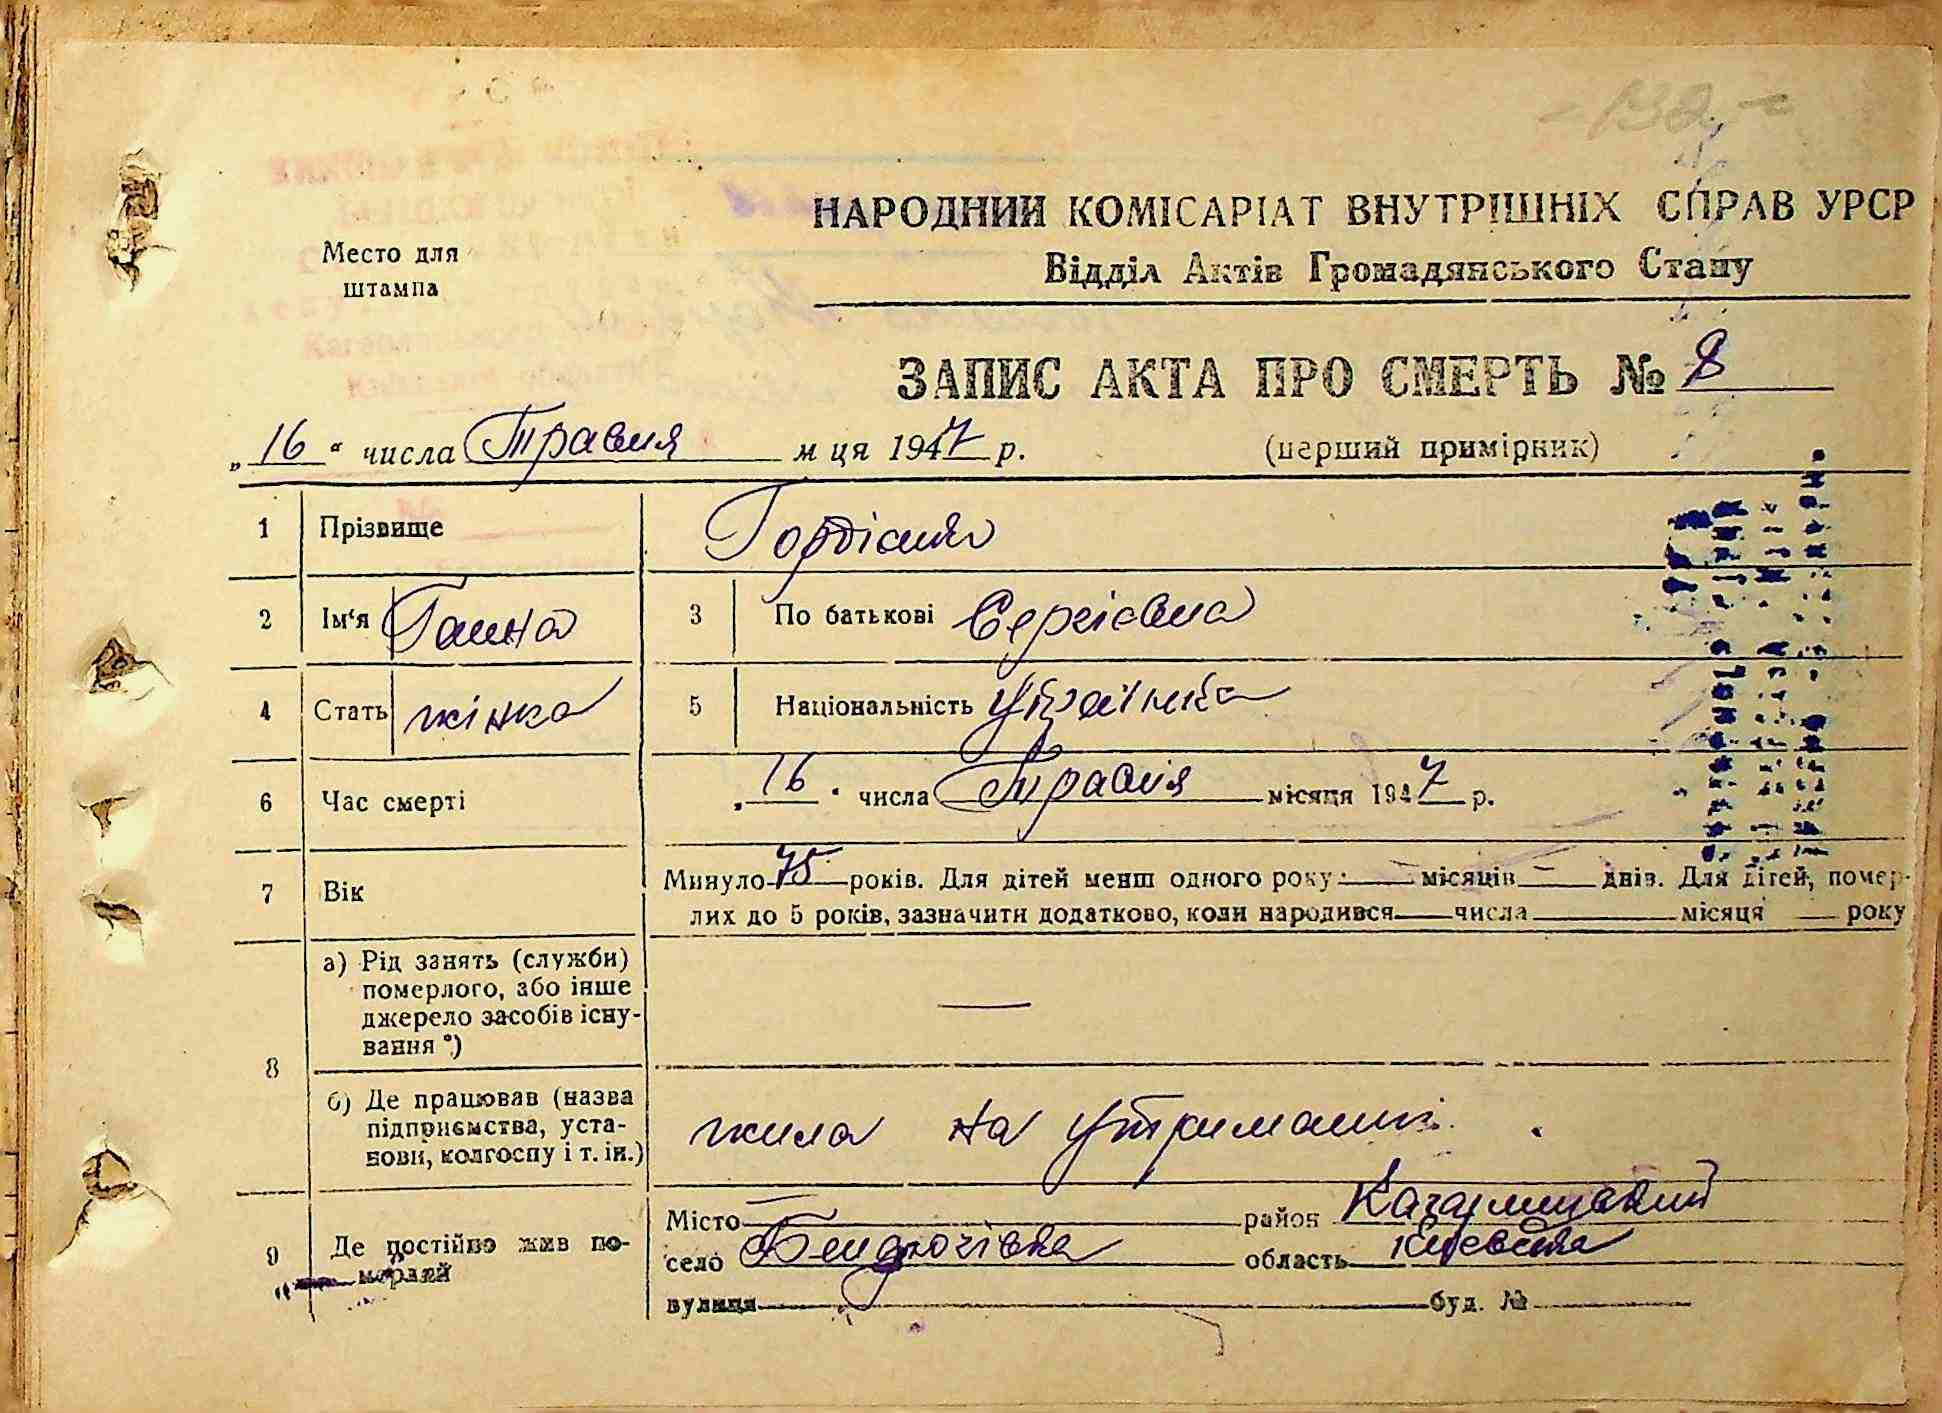 - 132 -
НАРОДНИЙ КОМІСАРІАТ ВНУТРІШНІХ СПРАВ УРСР
Відділ Актів Громадянського Стану
Место для
штампа
ЗАПИС АКТА ПРО СМЕРТЬ № 8
„16“ числа Травня м ця 1947 р. (перший примірник)
1 Прізвище Гордієнко
2 Ім‘я Ганна 3 По батькові Сергієвна
4 Стать жінка 5 Національність Українка
6 Час смерті „16“ числа Травня місяця 1947 р.
7 Вік Минуло 75 років. Для дітей менш одного року: — місяців — днів. Для дітей, помер-
лих до 5 років, зазначити додатково, коли народився числа місяця року
8 а) Рід занять (служби)
померлого, або інше
джерело засобів існу-
вання *) —
б) Де працював (назва
підприємства, уста-
нови, колгоспу і т. ін.) жила на утриманні.
9 Де постійно жив по-
мерлий
Місто — район Кагарлицький
село Бендюгівка область Київська
вулиця буд. №